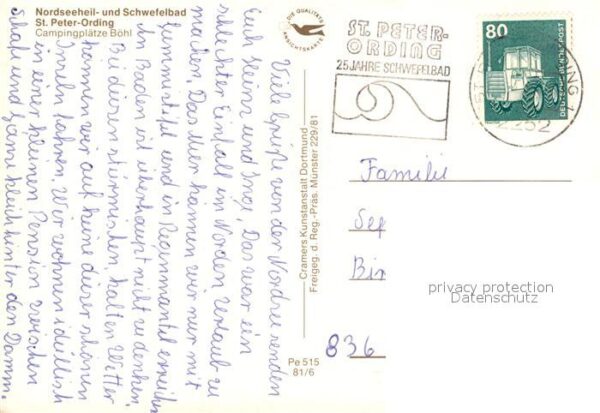 Nordseeheil- und Schwefelbad
St. Peter-Ording
Campingplätze Böhl
Viele Grüße von der Nordsee senden
Euch Heinz und Inge. Das war ein
schlechter Einfall im Norden Urlaub zu
machen. Das Meer kannen wir nur mit
Gummistiefel und in Regenmantel erreichen
An Baden ist überhaupt nicht zu denken.
Bei diesem stürmischen, kalten Wetter
können wir auf keine dieser schönen
Inseln fahren. Wir wohnen idüllisch
in einer kleinen Pension zwischen
Schafe und Gänse gleich hinter den Damm.
DIE QUALITÄTS
ANSICHTSKARTE
Cramers Kunstanstalt Dortmund
Freigeg. d. Reg.-Präs. Münster 229/81
Pe 515
81/6
ST. PETER-
ORDING
25 JAHRE SCHWEFELBAD
2252
80
DEUTSCHE BUNDESPOST
Familie
Sep
Bir
836
privacy protection
Datenschutz